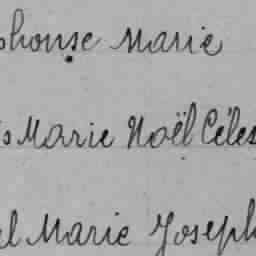 phonse Marie
s Marie Noël Céles
el Marie Joseph